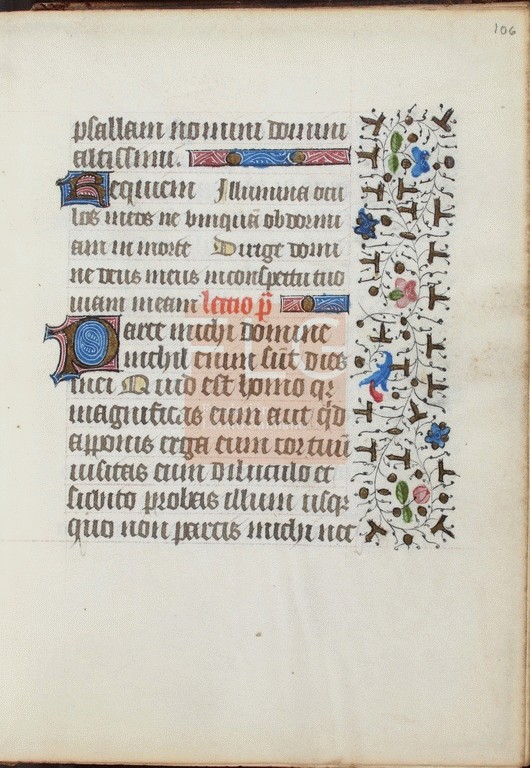 106
psallam nomini domini
altissimi.
Requiem Illumina ocu
los meos ne vnquā obdormi
am in morte Dirige domi
ne deus meus in conspectu tuo
uiam meam lectio p̄
Parce michi domine
nichil enim sūt dies
mei Quid est homo qꝛ
magnificas eum aut qͥd
apponis erga eum cor tuū
uisitas eum diluculo et
subito probas illum usqꝫ
quo non parcis michi nec